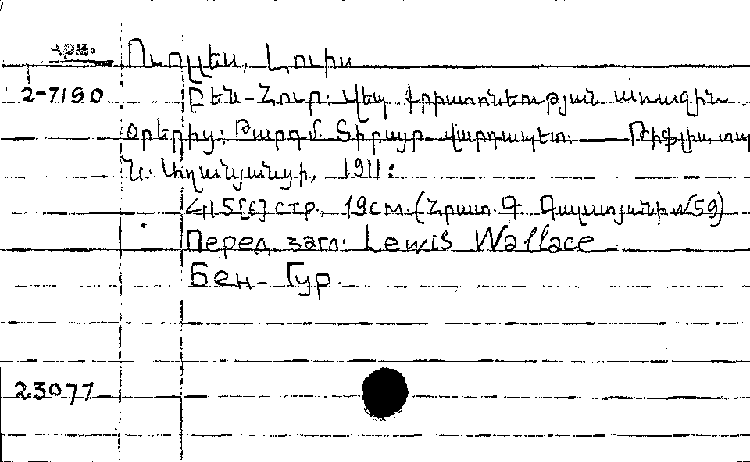 Арм.
Ուոլլես, Լուիս
2-7190
Բեն-Հուր: Վեպ քրիստոնեության առաջին
օրերից: Թարգմ. Տիրայր վարդապետ. — Թիֆլիս, տպ.
Ն. Աղանյանցի, 1911:
415[6] стр., 19см. (Հրատ. Գ. №59)
Перед загл: Lewis Wallace
Бен-Гур.
23077